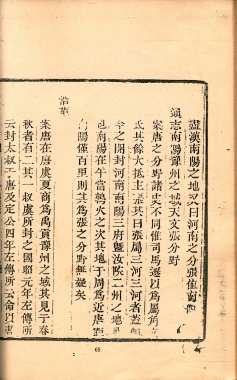 盡漢南陽之地又曰河南之分張
通志南陽豫州之域天文張分野
案唐之分野諸史不同惟司馬遷以爲屬角
氐其餘大抵主張其曰張屬三河三河者蓋
今之開封河南南陽三府暨汝陝二州之地
也南陽在午當鶉火之次其地于周爲近唐距
南陽僅百里則其爲張之分野無疑矣
沿革
案唐在唐虞夏商爲禹貢豫州之域其見于春
秋者有二其一叔虞所封之國昭元年左傳所
云封太叔于唐及定公四年左傳所云命以唐
68